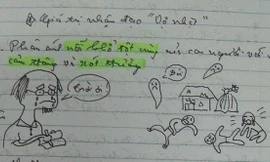 Giá trị nhân đạo "Vợ nhặt"
Phản ánh nỗi khổ
con người với
cảm thông và xót thương
trời ơi
Đói